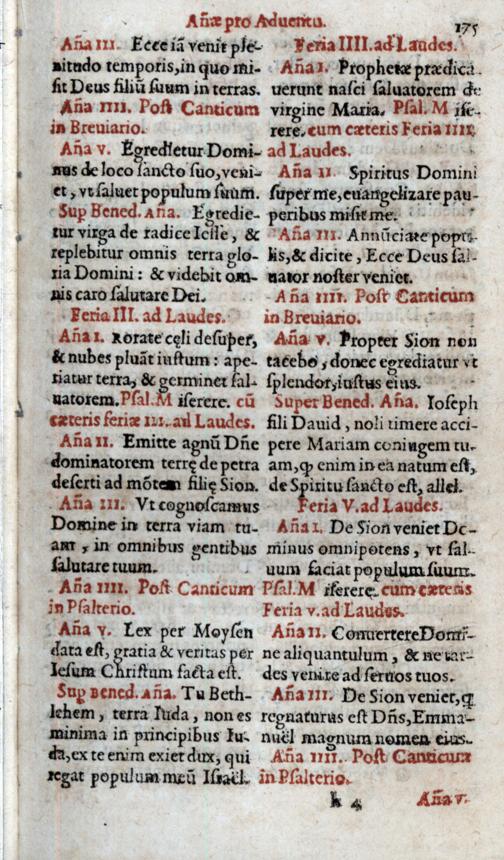 Añæ pro Aduentu.
175
Aña III. Ecce iã venit ple-
nitudo temporis, in quo mi-
sit Deus filiũ suum in terras.
Aña IIII. Post Canticum
in Breuiario.
Aña V. Egredietur Domi-
nus de loco sancto suo, veni-
et, vt saluet populum suum.
Sup Bened. Aña. Egredie-
tur virga de radice Iesse, &
replebitur omnis terra glo-
ria Domini: & videbit om-
nis caro salutare Dei.
Feria III. ad Laudes.
Aña I. Rorate cęli desuper,
& nubes pluãt iustum: ape-
riatur terra, & germinet sal-
uatorem. Psal. Miserere. cũ
cæteris feriæ III. ad Laudes.
Aña II. Emitte agnũ Dñe
dominatorem terrę de petra
deserti ad mõtem filię Sion.
Aña III. Vt cognoscamus
Domine in terra viam tu-
am, in omnibus gentibus
salutare tuum.
Aña IIII. Post Canticum
in Psalterio.
Aña V. Lex per Moysen
data est, gratia & veritas per
Iesum Christum facta est.
Sup Bened. Aña. Tu Beth-
lehem, terra Iuda, non es
minima in principibus Iu-
da, ex te enim exiet dux, qui
regat populum meũ Israel.
Feria IIII. ad Laudes.
Aña I. Prophetæ prædica-
uerunt nasci saluatorem de
virgine Maria. Psal. M ise-
rere. cum cæteris Feria IIII.
ad Laudes.
Aña II. Spiritus Domini
super me, euangelizare pau-
peribus misit me.
Aña III. Annũciate popu-
lis, & dicite, Ecce Deus sal-
uator noster veniet.
Aña IIII. Post Canticum
in Breuiario.
Aña V. Propter Sion non
tacebo, donec egrediatur vt
splendor, iustus eius.
Super Bened. Aña. Ioseph
fili Dauid, noli timere acci-
pere Mariam coniugem tu-
am, ꝙ enim in ea natum est,
de Spiritu sancto est, allel.
Feria V. ad Laudes.
Aña I. De Sion veniet Do-
minus omnipotens, vt sal-
uum faciat populum suum.
Psal. M iserere. cum cæteris
Feria V. ad Laudes.
Aña II. Conuertere Domi-
ne aliquantulum, & ne tar-
des venire ad seruos tuos.
Aña III. De Sion veniet, ꝗ
regnaturus est Dñs, Emma-
nuël magnum nomen eius.
Aña IIII. Post Canticum
in Psalterio.
h 4
Aña V.